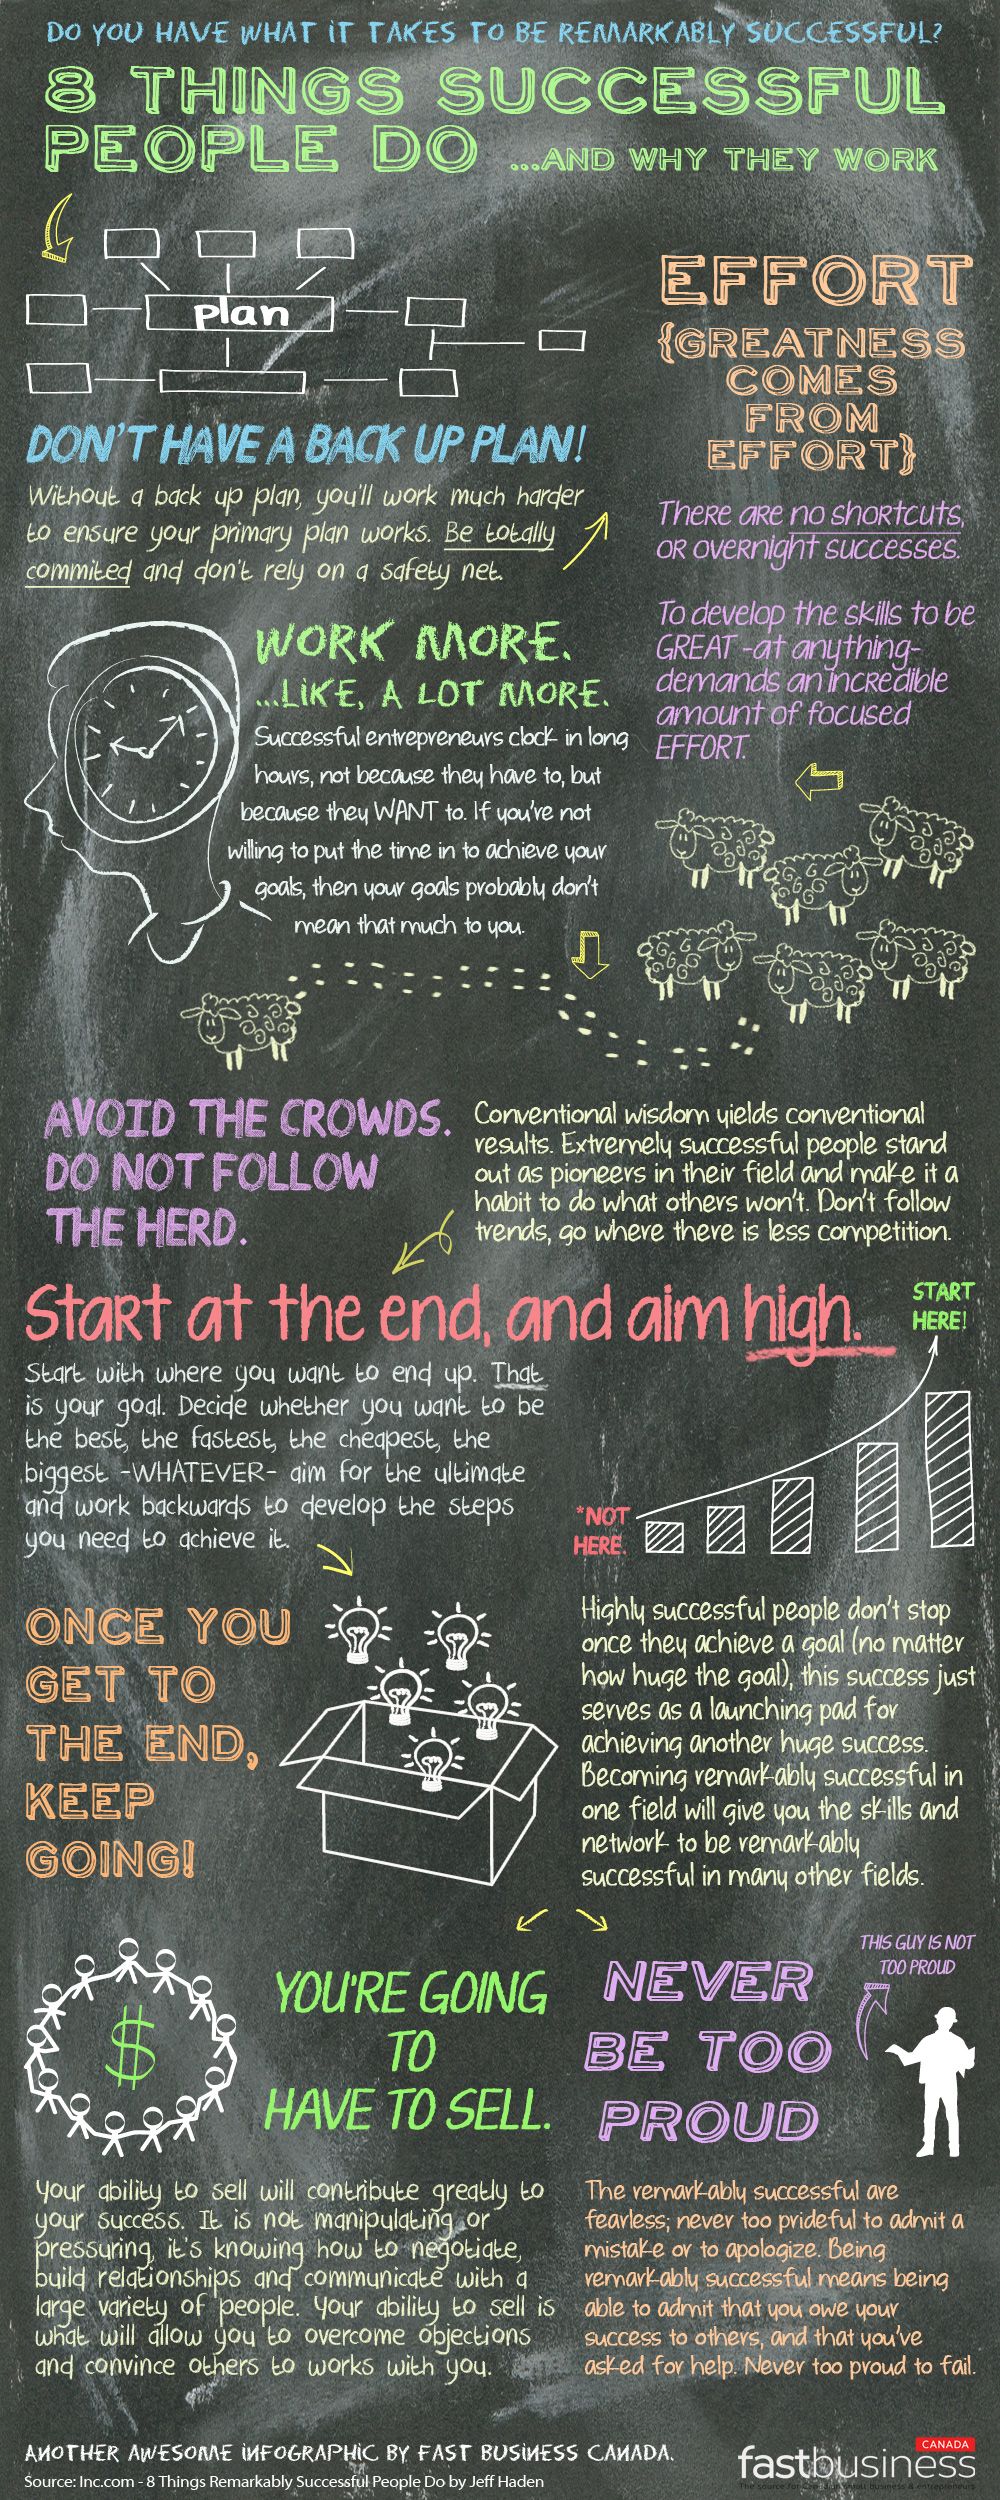 DO YOU HAVE WHAT IT TAKES TO BE REMARKABLY SUCCESSFUL?
8 THINGS SUCCESSFUL
PEOPLE DO ...AND WHY THEY WORK
plan
DON'T HAVE A BACK UP PLAN!
Without a back up plan, you'll work much harder
to ensure your primary plan works. Be totally
commited and don't rely on a safety net.
EFFORT
{GREATNESS
COMES
FROM
EFFORT}
There are no shortcuts,
or overnight successes.
To develop the skills to be
GREAT -at anything-
demands an incredible
amount of focused
EFFORT.
WORK MORE.
...LIKE, A LOT MORE.
Successful entrepreneurs clock in long
hours, not because they have to, but
because they WANT to. If you're not
willing to put the time in to achieve your
goals, then your goals probably don't
mean that much to you.
AVOID THE CROWDS.
DO NOT FOLLOW
THE HERD.
Conventional wisdom yields conventional
results. Extremely successful people stand
out as pioneers in their field and make it a
habit to do what others won't. Don't follow
trends, go where there is less competition.
Start at the end, and aim high.
START
HERE!
Start with where you want to end up. That
is your goal. Decide whether you want to be
the best, the fastest, the cheapest, the
biggest -WHATEVER- aim for the ultimate
and work backwards to develop the steps
you need to achieve it.
*NOT
HERE.
ONCE YOU
GET TO
THE END,
KEEP
GOING!
Highly successful people don't stop
once they achieve a goal (no matter
how huge the goal), this success just
serves as a launching pad for
achieving another huge success.
Becoming remarkably successful in
one field will give you the skills and
network to be remarkably
successful in many other fields.
$
YOU'RE GOING
TO
HAVE TO SELL.
NEVER
BE TOO
PROUD
THIS GUY IS NOT
TOO PROUD
Your ability to sell will contribute greatly to
your success. It is not manipulating or
pressuring, it's knowing how to negotiate,
build relationships and communicate with a
large variety of people. Your ability to sell is
what will allow you to overcome objections
and convince others to works with you.
The remarkably successful are
fearless; never too prideful to admit a
mistake or to apologize. Being
remarkably successful means being
able to admit that you owe your
success to others, and that you've
asked for help. Never too proud to fail.
ANOTHER AWESOME INFOGRAPHIC BY FAST BUSINESS CANADA.
Source: Inc.com - 8 Things Remarkably Successful People Do by Jeff Haden
CANADA
fastbusiness
The source for Canadian small business & entrepreneurs